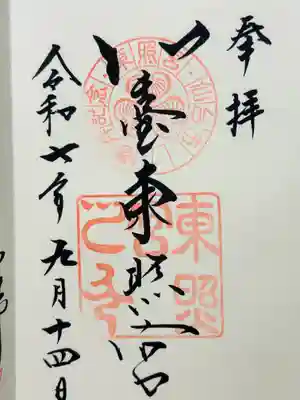 奉拝
仙臺東照宮
東照宮之印
令和七年九月十四日